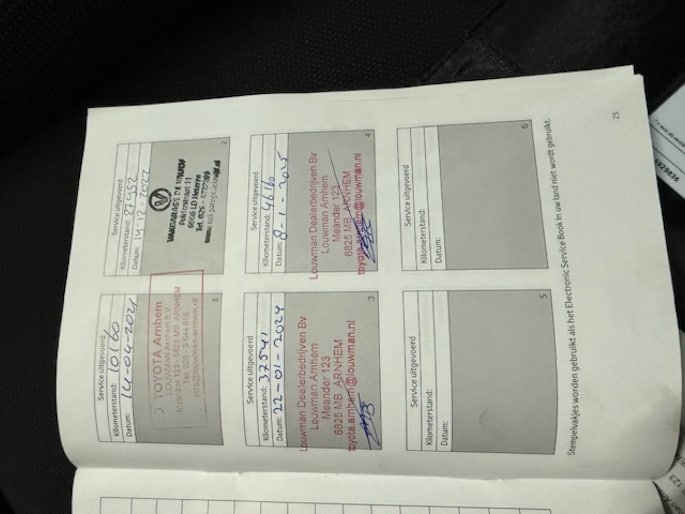 Service uitgevoerd
Kilometerstand: 10160
Datum: 14-04-2021
1
TOYOTA Arnhem
LOUWMAN Arnhem B.V.
Meander 123 - 6825 MB ARNHEM
Service uitgevoerd
Kilometerstand:
Datum: 14-12-2022
2
VAKGARAGE DE
Service uitgevoerd
Kilometerstand: 37541
Datum: 22-01-2024
3
Louwman Dealerbedrijven Bv
Louwman Arnhem
Meander 123
6825 MB ARNHEM
toyota.arnhem@louwman.nl
Service uitgevoerd
Kilometerstand: 46160
Datum: 8-1-2025
4
Louwman Dealerbedrijven Bv
Louwman Arnhem
Meander 123
6825 MB ARNHEM
toyota.arnhem@louwman.nl
Service uitgevoerd
Kilometerstand:
Datum:
5
Service uitgevoerd
Kilometerstand:
Datum:
6
Stempelvakjes worden gebruikt als het Electronic Service Book in uw land niet wordt gebruikt.
25
6929836
123